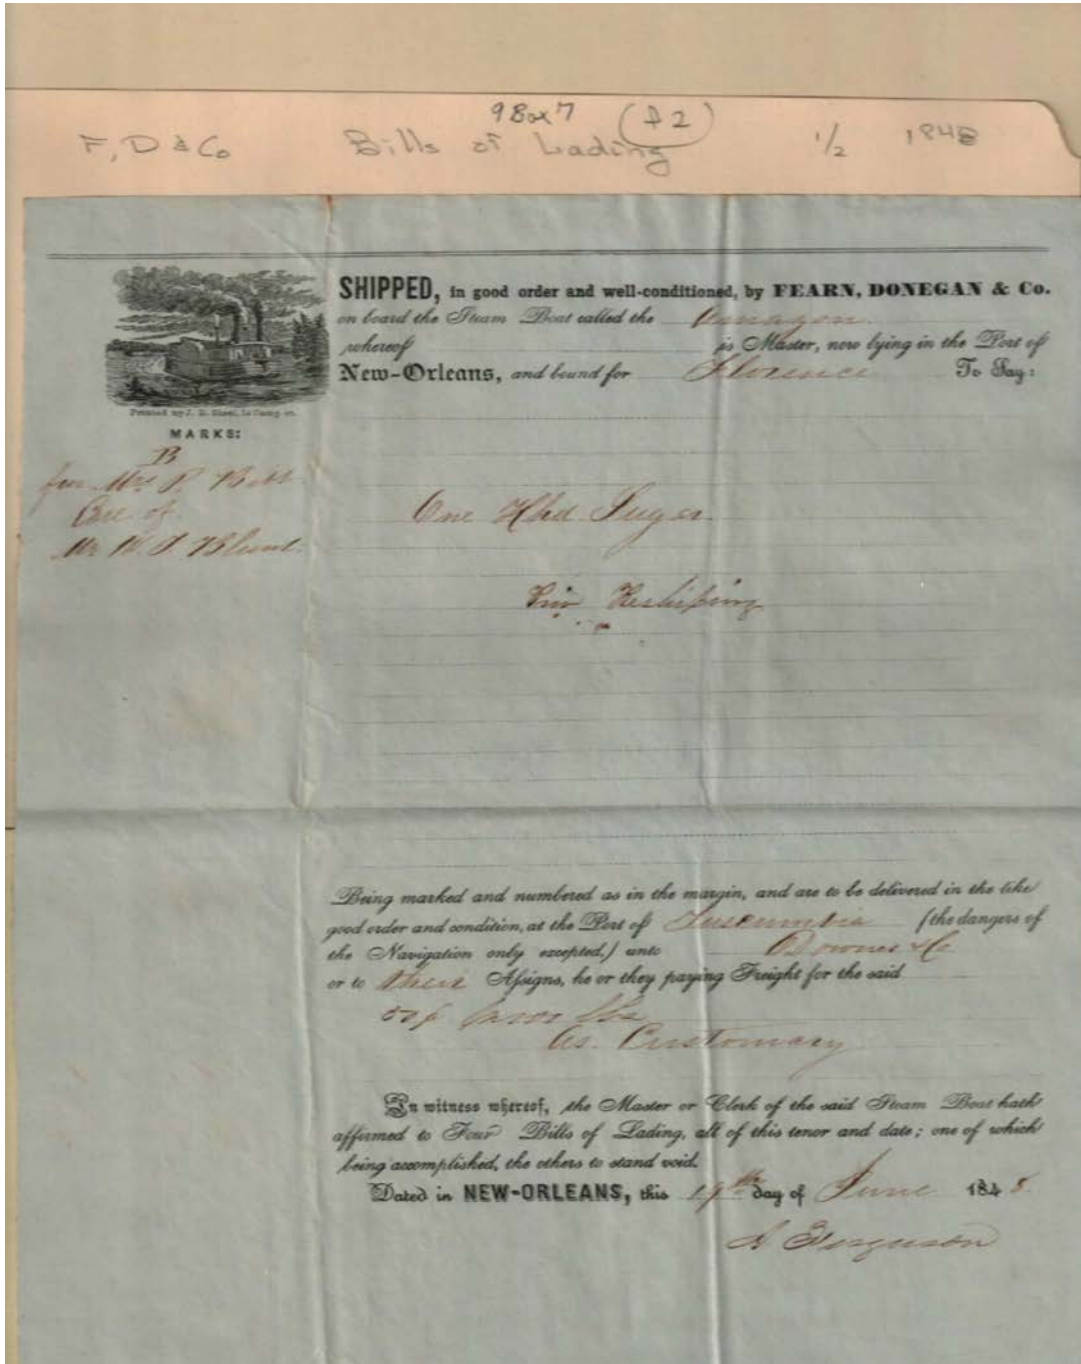 9 Box 7 (f2)
F, D & Co Bills of Lading 1/2 1848
SHIPPED, in good order and well-conditioned, by FEARN, DONEGAN & Co.
on board the Steam Boat called the
whereof is Master, now lying in the Port of
New-Orleans, and bound for Florence To Say:
MARKS:
B
for Mrs P. Bibb
Care of
Mr
One Hhd Sugar
Reshiping
Being marked and numbered as in the margin, and are to be delivered in the like
good order and condition, at the Port of Tuscumbia (the dangers of
the Navigation only excepted,) unto Downes & Co
or to their Assigns, he or they paying Freight for the said
As Customary
In witness whereof, the Master or Clerk of the said Steam Boat hath
affirmed to Four Bills of Lading, all of this tenor and date; one of which
being accomplished, the others to stand void.
Dated in NEW-ORLEANS, this 19th day of June 1848.
A Ferguson